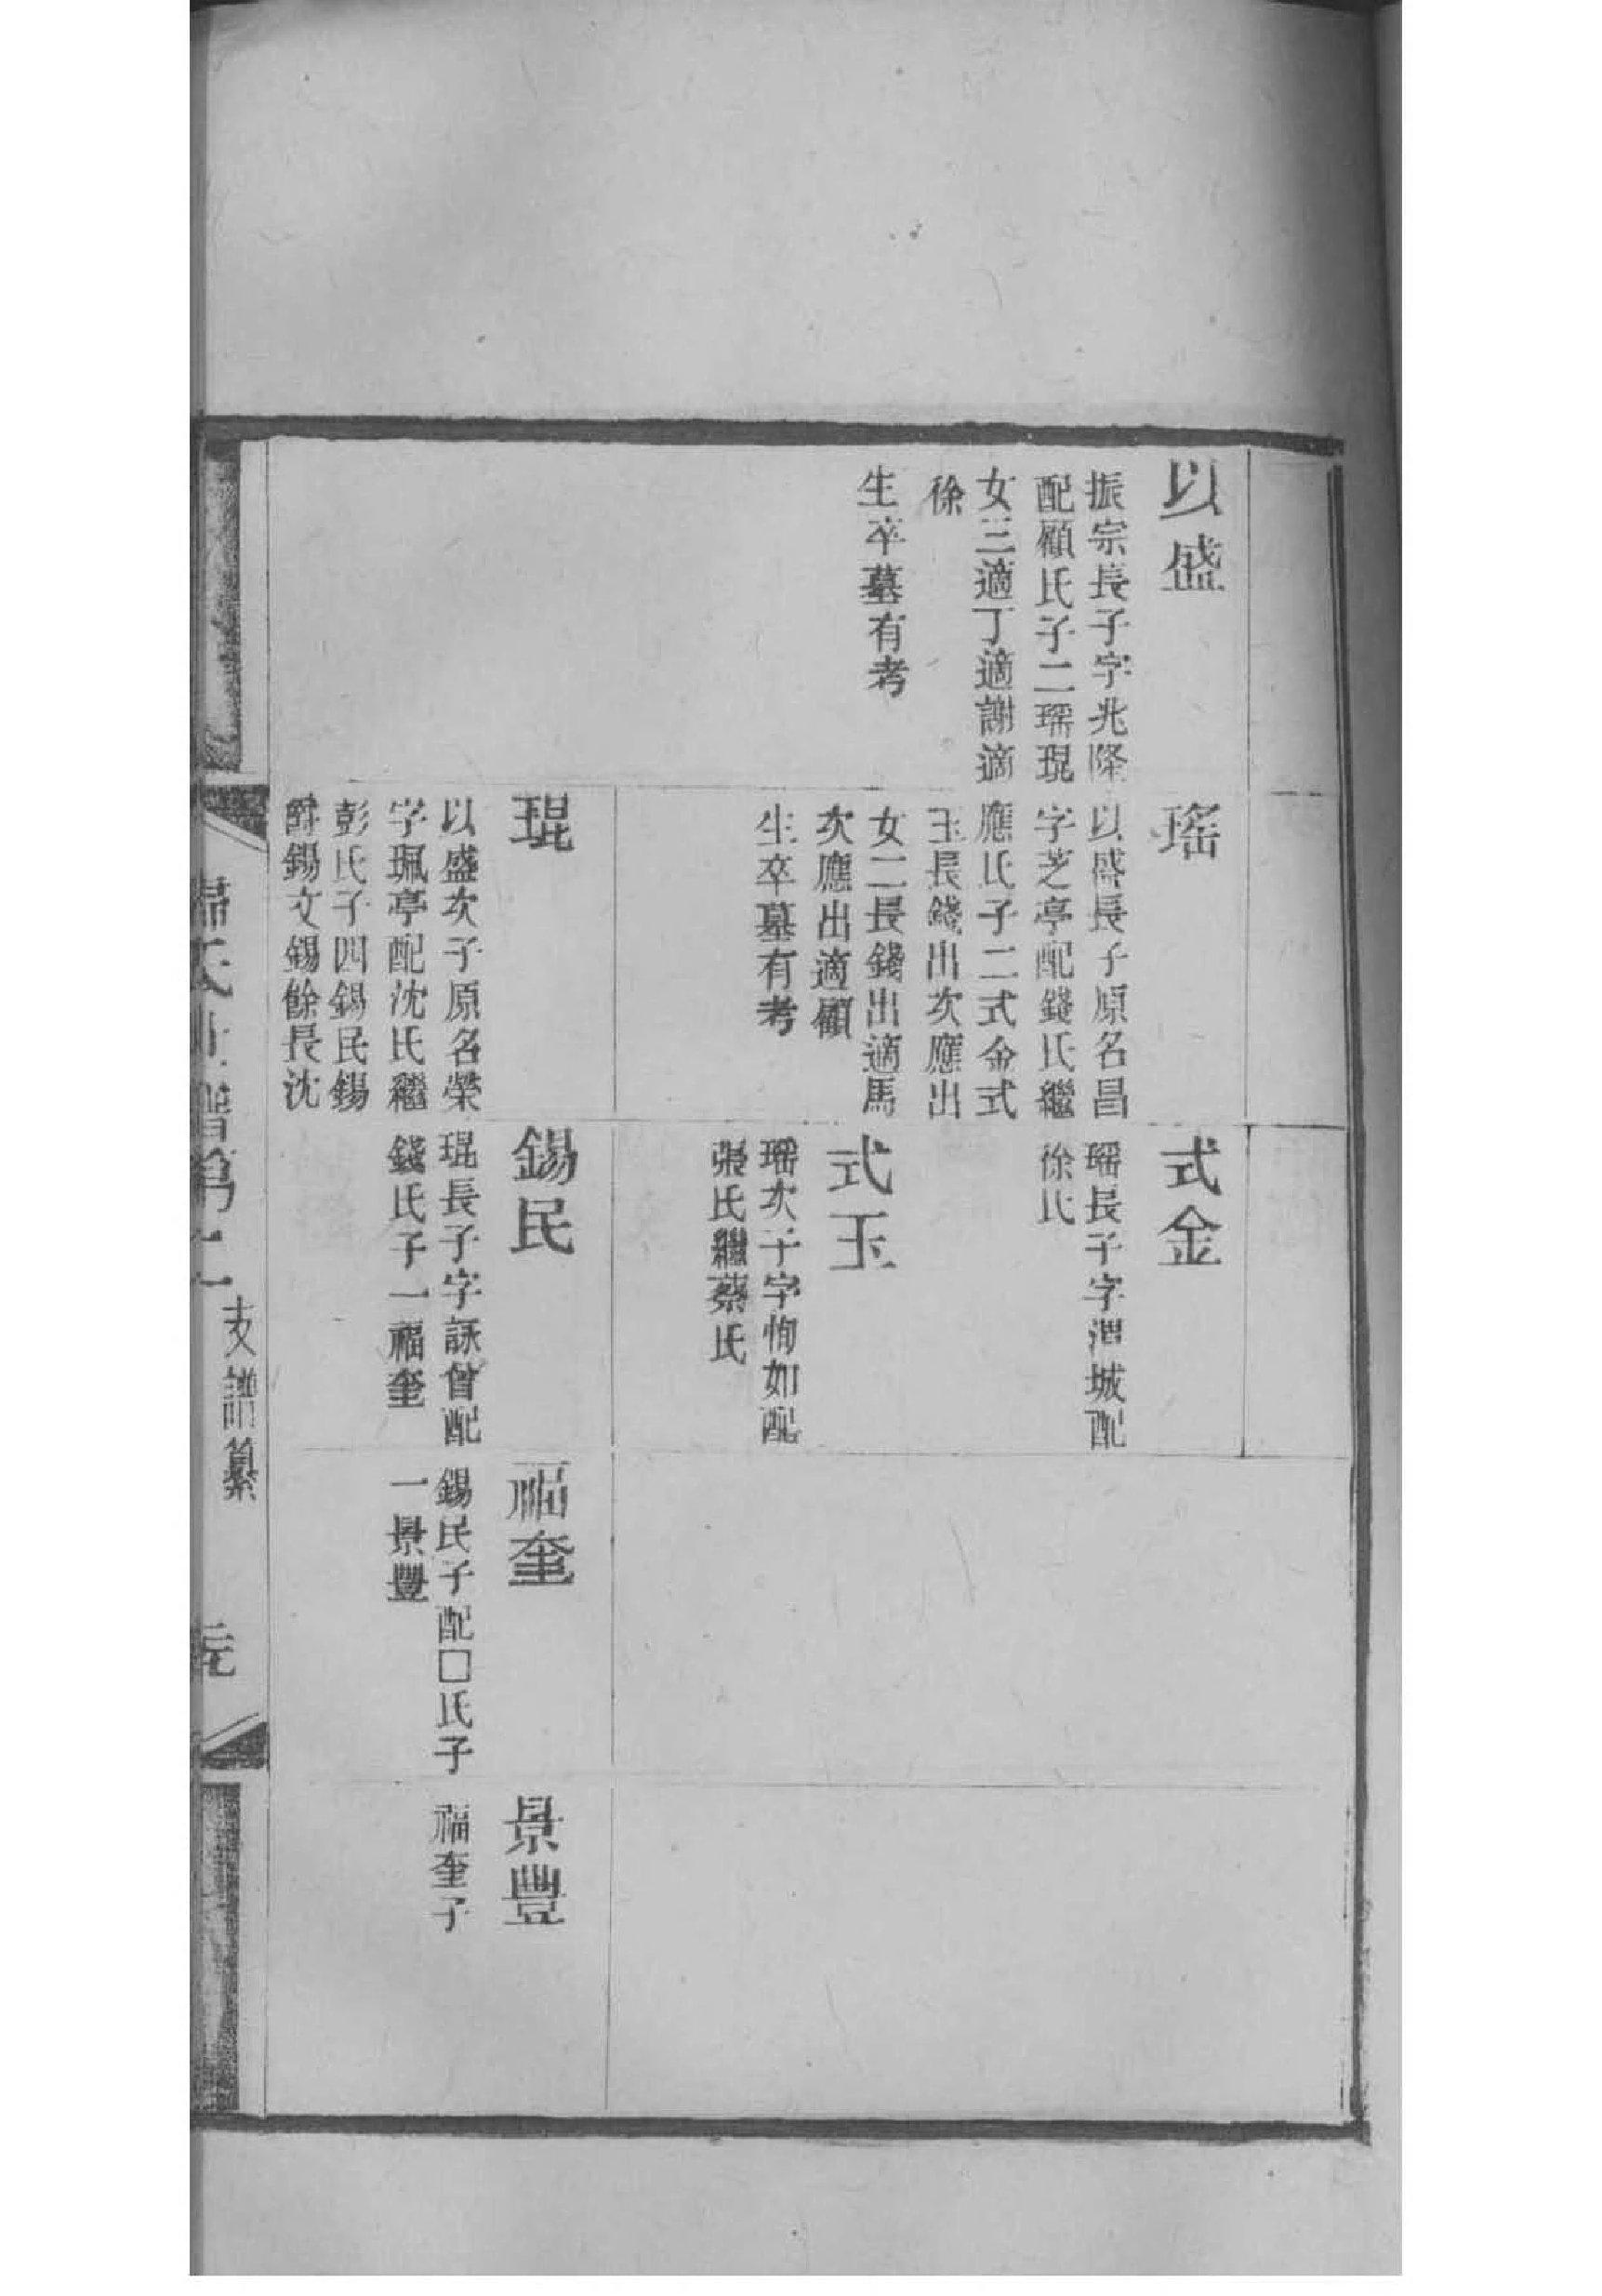 以盛
振宗長子字兆隆
配顧氏子二瑶琨
女三適丁適謝適
徐
生卒墓有考
瑤
以盛長子原名昌
字芝亭配錢氏繼
應氏子二式金式
玉長錢出次應出
女二長錢出適馬
次應出適顧
生卒墓有考
式金
瑶長子字涠城配
徐氏
式玉
瑶次子字恂如配
張氏繼蔡氏
琨
以盛次子原名榮
字珮亭配沈氏繼
彭氏子四錫民錫
爵錫文錫餘長沈
錫民
琨長子字詠曾配
錢氏子一福奎
福奎
錫民子配□氏子
一景豐
景豐
福奎子
歸氏世譜第十一
支譜纂